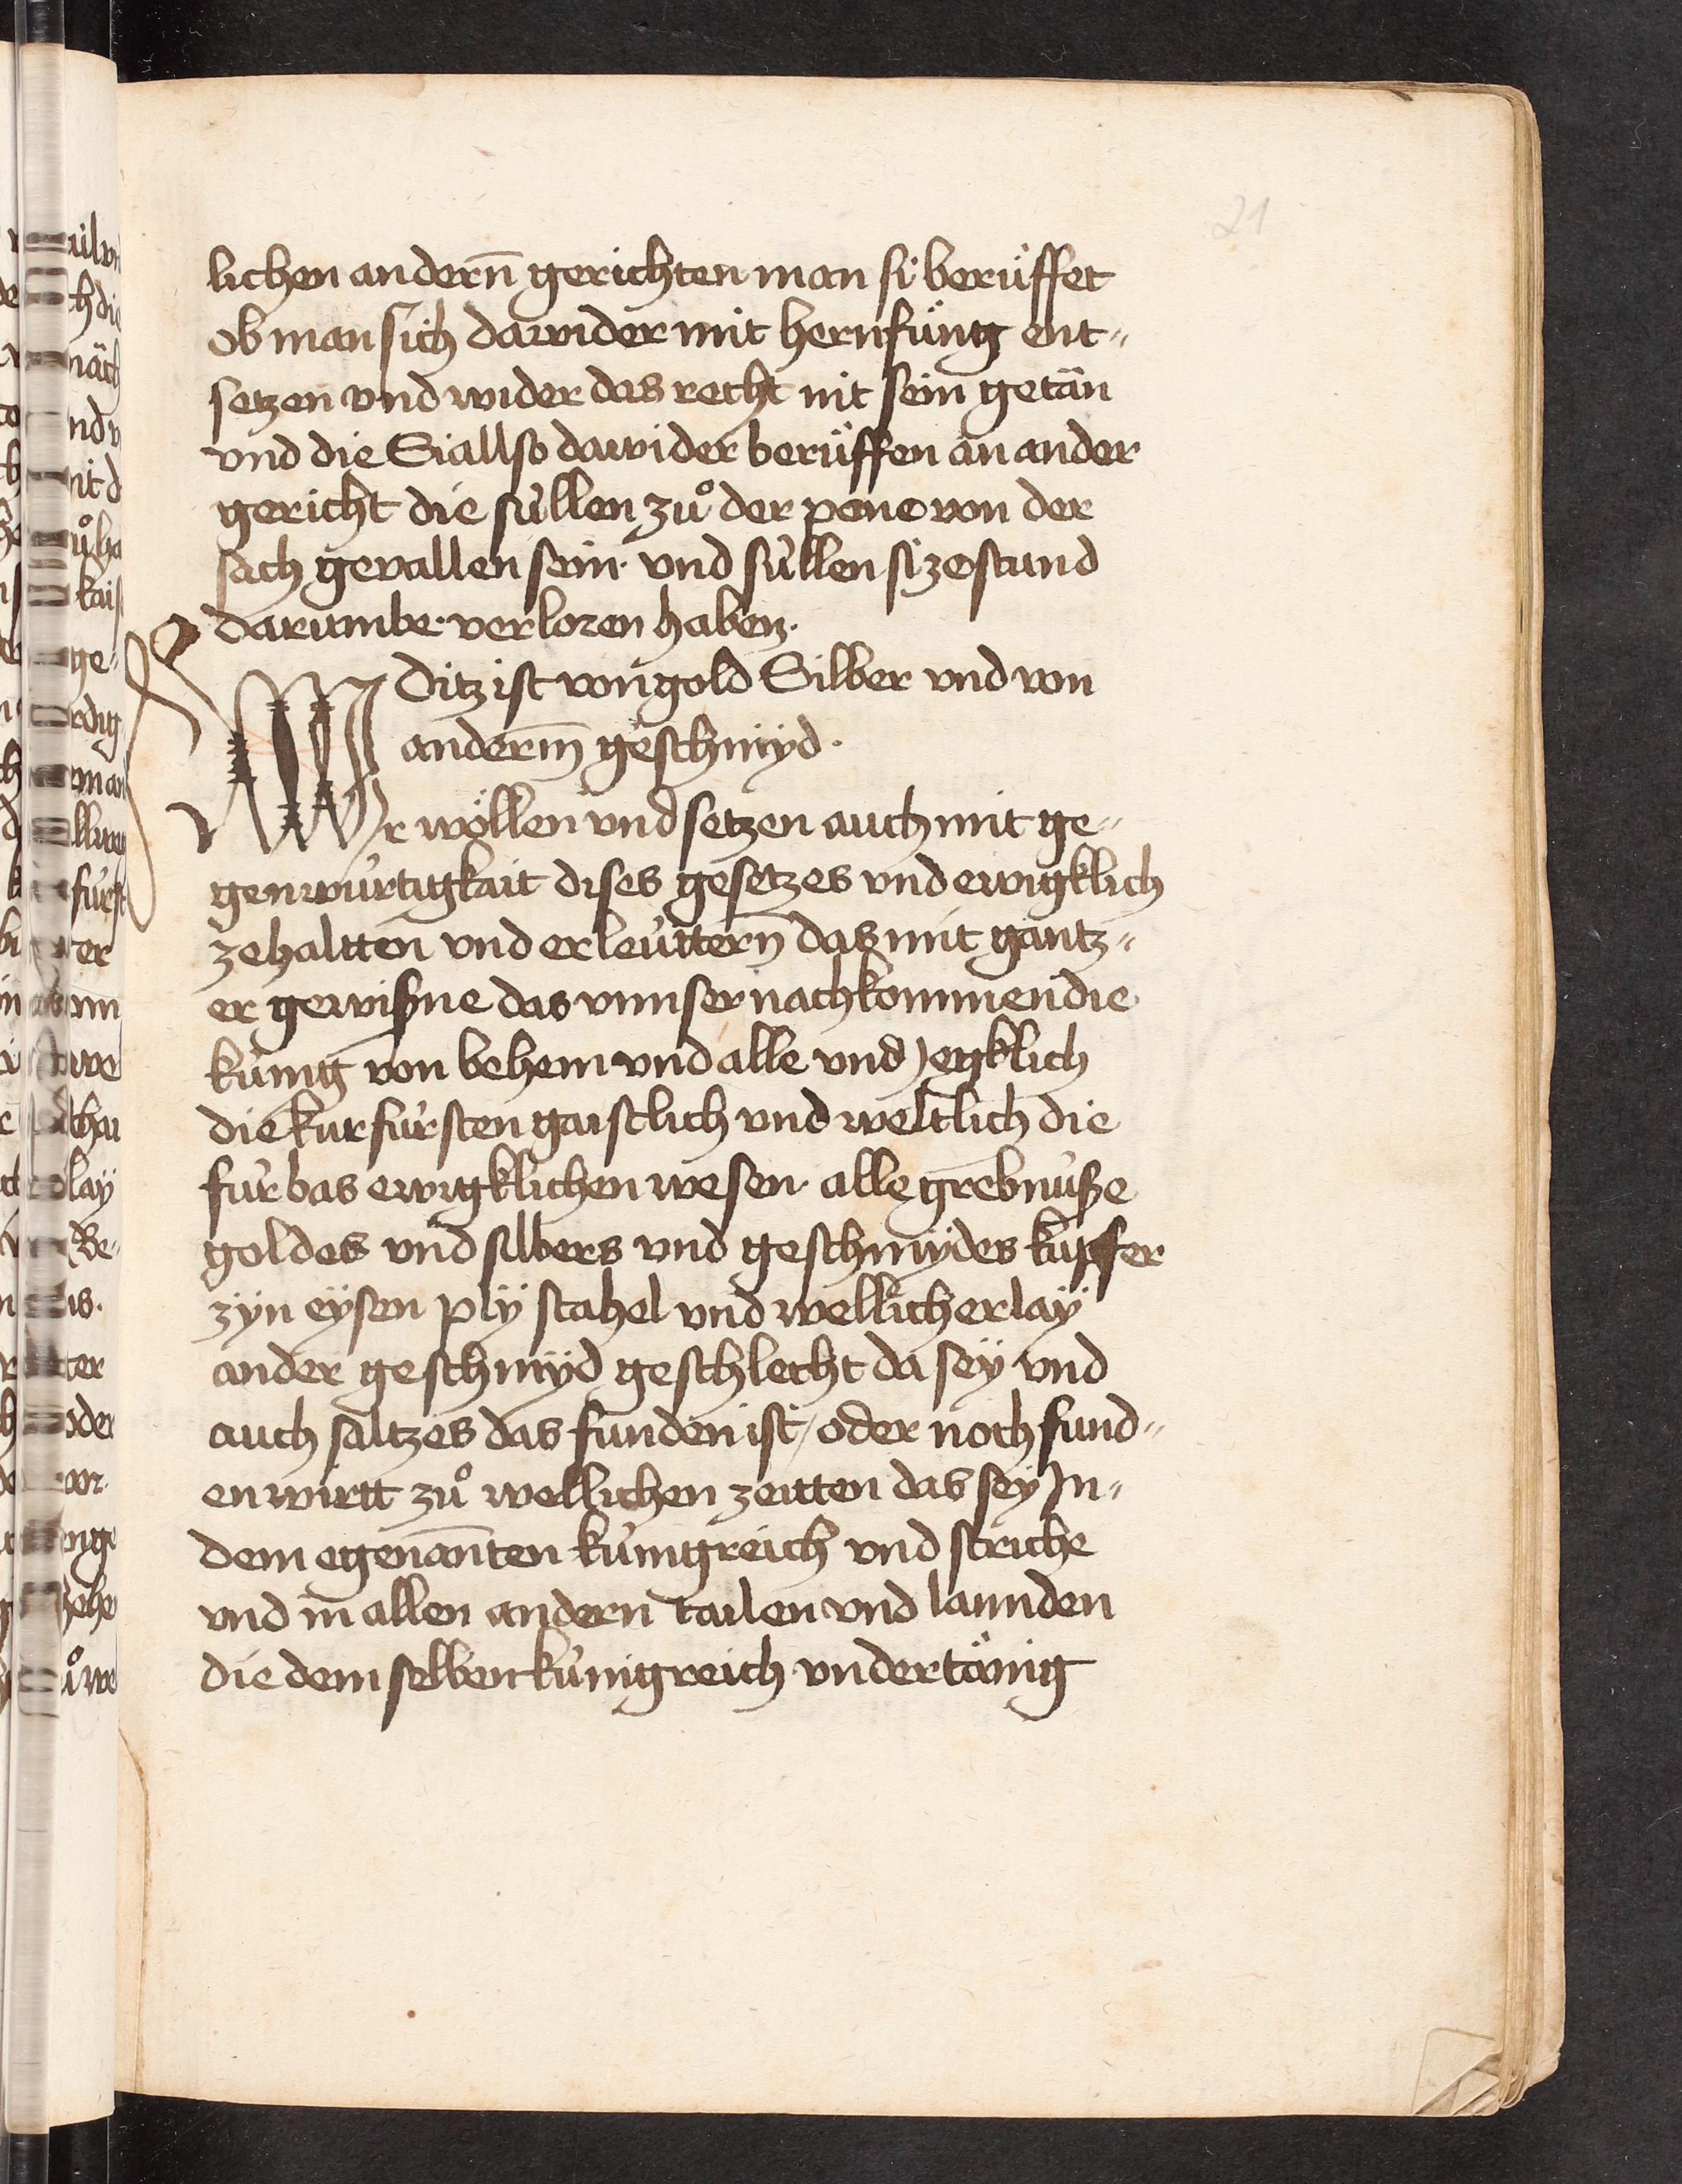 21
lichen andern̄ gerichten man si berüffet
ob man sich dawider mit herufüng ent„
setzen vnd wider das recht nit sein getän
vnd die Si allso dawider berüffen an ander
gericht die süllen zů der pene von der
sach geuallen sein· vnd süllen si zestund
darumbe· verloren haben·
Ditz ist von gold Silber vnd von
anderm̄ geschmÿd·
Wir wöllen vnd setzen auch mit ge„
genwürtigkait dises gesetzes vnd ewigklich
zehaltten vnd erleüttern̄ das mit gantz„
er gewißne das vnnser nachkommen die
künig von behem vnd alle vnd yegklich
die kurfürsten gaistlich vnd weltlich die
fürbas ewigklichen wesen· alle grebnüße
goldes vnd silbers vnd geschmÿdes kupfer
zÿn eÿsen plÿ stahel vnd wellicherlaÿ
ander geschmÿd geschlecht da seÿ vnd
auch saltzes das funden ist / oder noch fund„
en wirtt zů wellichen zeitten das seÿ In„
dem egenan̄ten künigreich vnd striche
vnd in allen andern tailen vnd lannden
die dem selben künigreich vndertänig